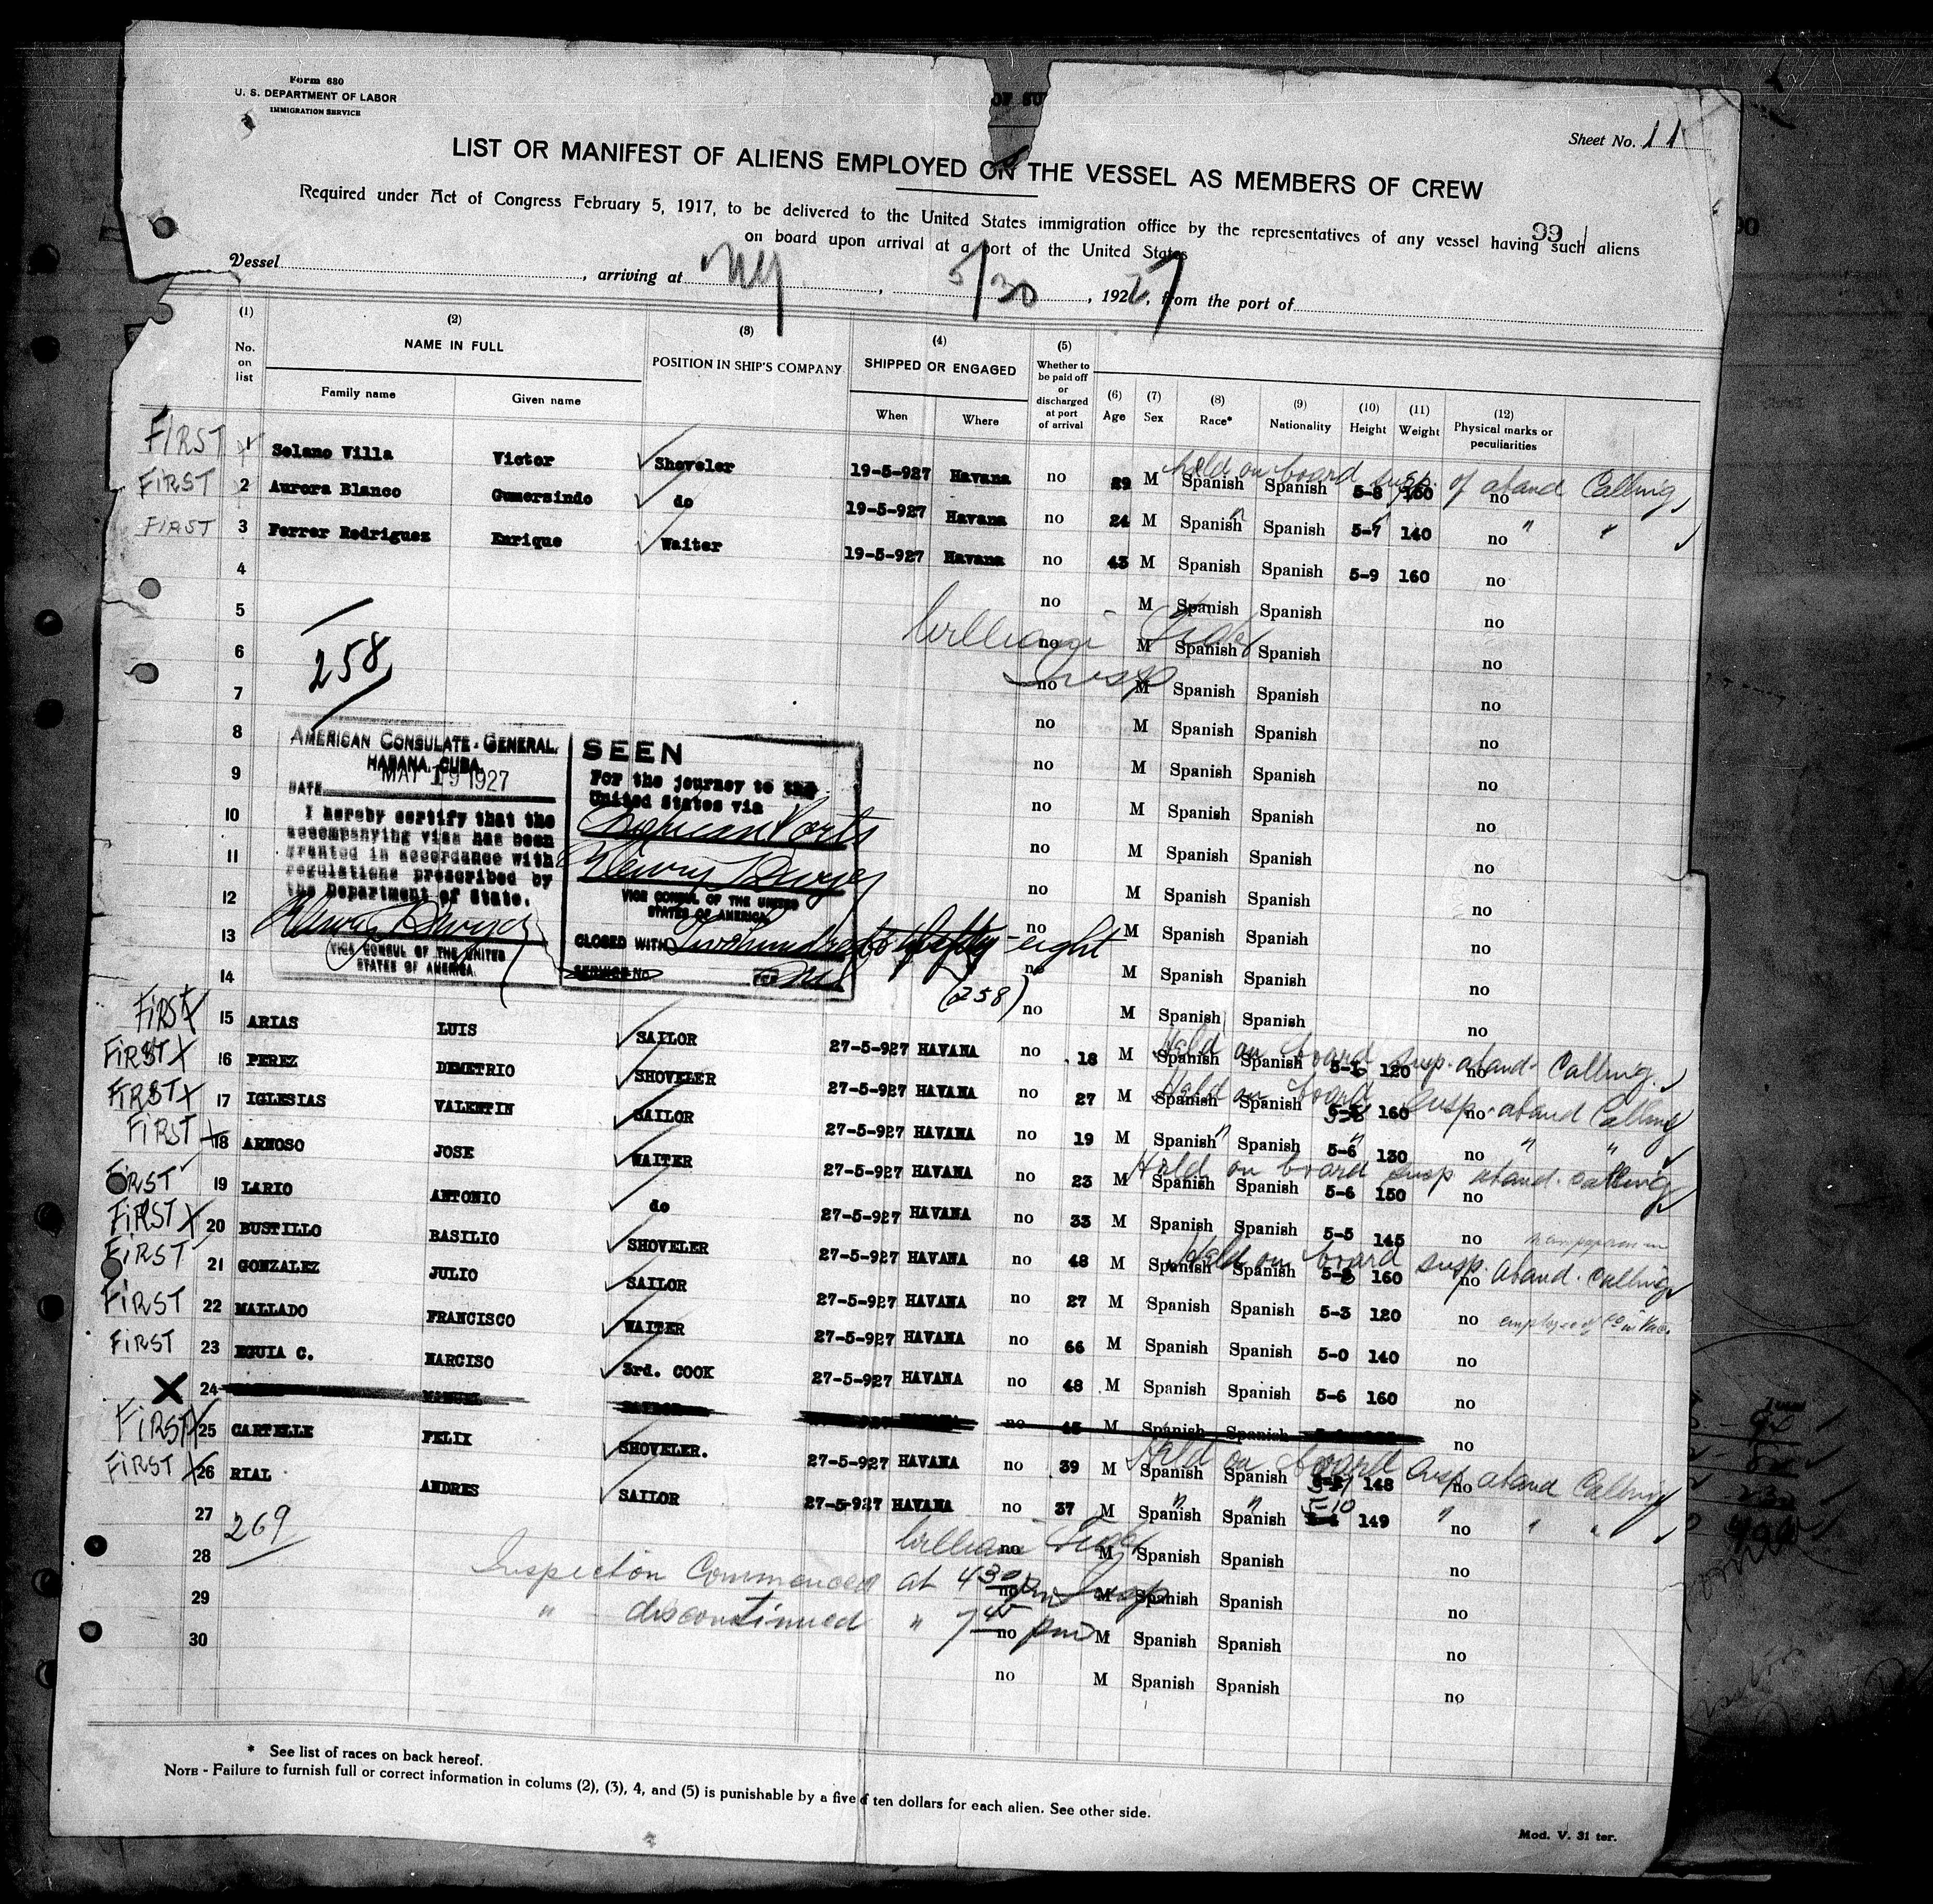 Form 680
U. S. DEPARTMENT OF LABOR
IMMIGRATION SERVICE
OF SU
Sheet No. 11
LIST OR MANIFEST OF ALIENS EMPLOYED ON THE VESSEL AS MEMBERS OF CREW
Required under Act of Congress February 5, 1917, to be delivered to the United States immigration office by the representatives of any vessel having such aliens
99
on board upon arrival at a port of the United States
Vessel , arriving at NY , 5/30 , 1927, from the port of
(1) No. on list
(2) NAME IN FULL
Family name Given name
(3) POSITION IN SHIP'S COMPANY
(4) SHIPPED OR ENGAGED
When Where
(5) Whether to be paid off or discharged at port of arrival
(6) Age (7) Sex (8) Race* (9) Nationality (10) Height (11) Weight (12) Physical marks or peculiarities
FIRST 1 Solano Villa Victor Shoveler 19-5-927 Havana no 29 M Spanish Spanish 5-8 150 no
held on board susp. of aband Calling
FIRST 2 Aurora Blanco Gumersindo do 19-5-927 Havana no 24 M Spanish Spanish 5-7 140 no " "
FIRST 3 Ferrer Rodriguez Enrique Waiter 19-5-927 Havana no 43 M Spanish Spanish 5-9 160 no
4 no M Spanish Spanish no
5 no M Spanish Spanish no
6 no M Spanish Spanish no
7 no M Spanish Spanish no
8 no M Spanish Spanish no
9 no M Spanish Spanish no
10 no M Spanish Spanish no
11 no M Spanish Spanish no
12 no M Spanish Spanish no
13 no M Spanish Spanish no
14 no M Spanish Spanish no
William
Insp
258
AMERICAN CONSULATE-GENERAL.
HABANA, CUBA.
DATE MAY 19 1927
I hereby certify that the
accompanying visa has been
granted in accordance with
regulations prescribed by
the Department of State.
VICE CONSUL OF THE UNITED
STATES OF AMERICA.
SEEN
For the journey to the
United States via
Ports
Henry
VICE CONSUL OF THE UNITED
STATES OF AMERICA
CLOSED WITH Two hundred & fifty-eight
SERVICE No.
(258)
FIRST X 15 ARIAS LUIS SAILOR 27-5-927 HAVANA no 18 M Spanish Spanish 120 no
Held on board susp. aband. Calling.
FIRST X 16 PEREZ DEMETRIO SHOVELER 27-5-927 HAVANA no 27 M Spanish Spanish 160 no
Held on board susp. aband Calling
FIRST X 17 IGLESIAS VALENTIN SAILOR 27-5-927 HAVANA no 19 M Spanish Spanish 5-6 130 no " "
FIRST X 18 ARNOSO JOSE WAITER 27-5-927 HAVANA no 23 M Spanish Spanish 5-6 150 no
Held on board susp aband. calling
FIRST 19 LARIO ANTONIO do 27-5-927 HAVANA no 33 M Spanish Spanish 5-5 145 no
FIRST X 20 BUSTILLO BASILIO SHOVELER 27-5-927 HAVANA no 48 M Spanish Spanish 160 no
Held on board susp. aband. Calling
FIRST 21 GONZALEZ JULIO SAILOR 27-5-927 HAVANA no 27 M Spanish Spanish 5-3 120 no
FIRST 22 MALLADO FRANCISCO WAITER 27-5-927 HAVANA no 66 M Spanish Spanish 5-0 140 no
FIRST 23 EGUIA C. NARCISO 3rd. COOK 27-5-927 HAVANA no 48 M Spanish Spanish 5-6 160 no
X 24 MANUEL HAVANA no 45 M Spanish Spanish no
FIRST X 25 CARTELLE FELIX SHOVELER. 27-5-927 HAVANA no 39 M Spanish Spanish 148 no
Held on board susp aband Calling
FIRST X 26 RIAL ANDRES SAILOR 27-5-927 HAVANA no 37 M Spanish Spanish 5-10 149 no " "
27 no M Spanish Spanish no
269
William
28 no M Spanish Spanish no
Inspection Commenced at 4 30 pm Insp
29 no M Spanish Spanish no
" discontinued " 7 45 pm
30 no M Spanish Spanish no
* See list of races on back hereof.
NOTE - Failure to furnish full or correct information in colums (2), (3), 4, and (5) is punishable by a five of ten dollars for each alien. See other side.
Mod. V. 31 ter.